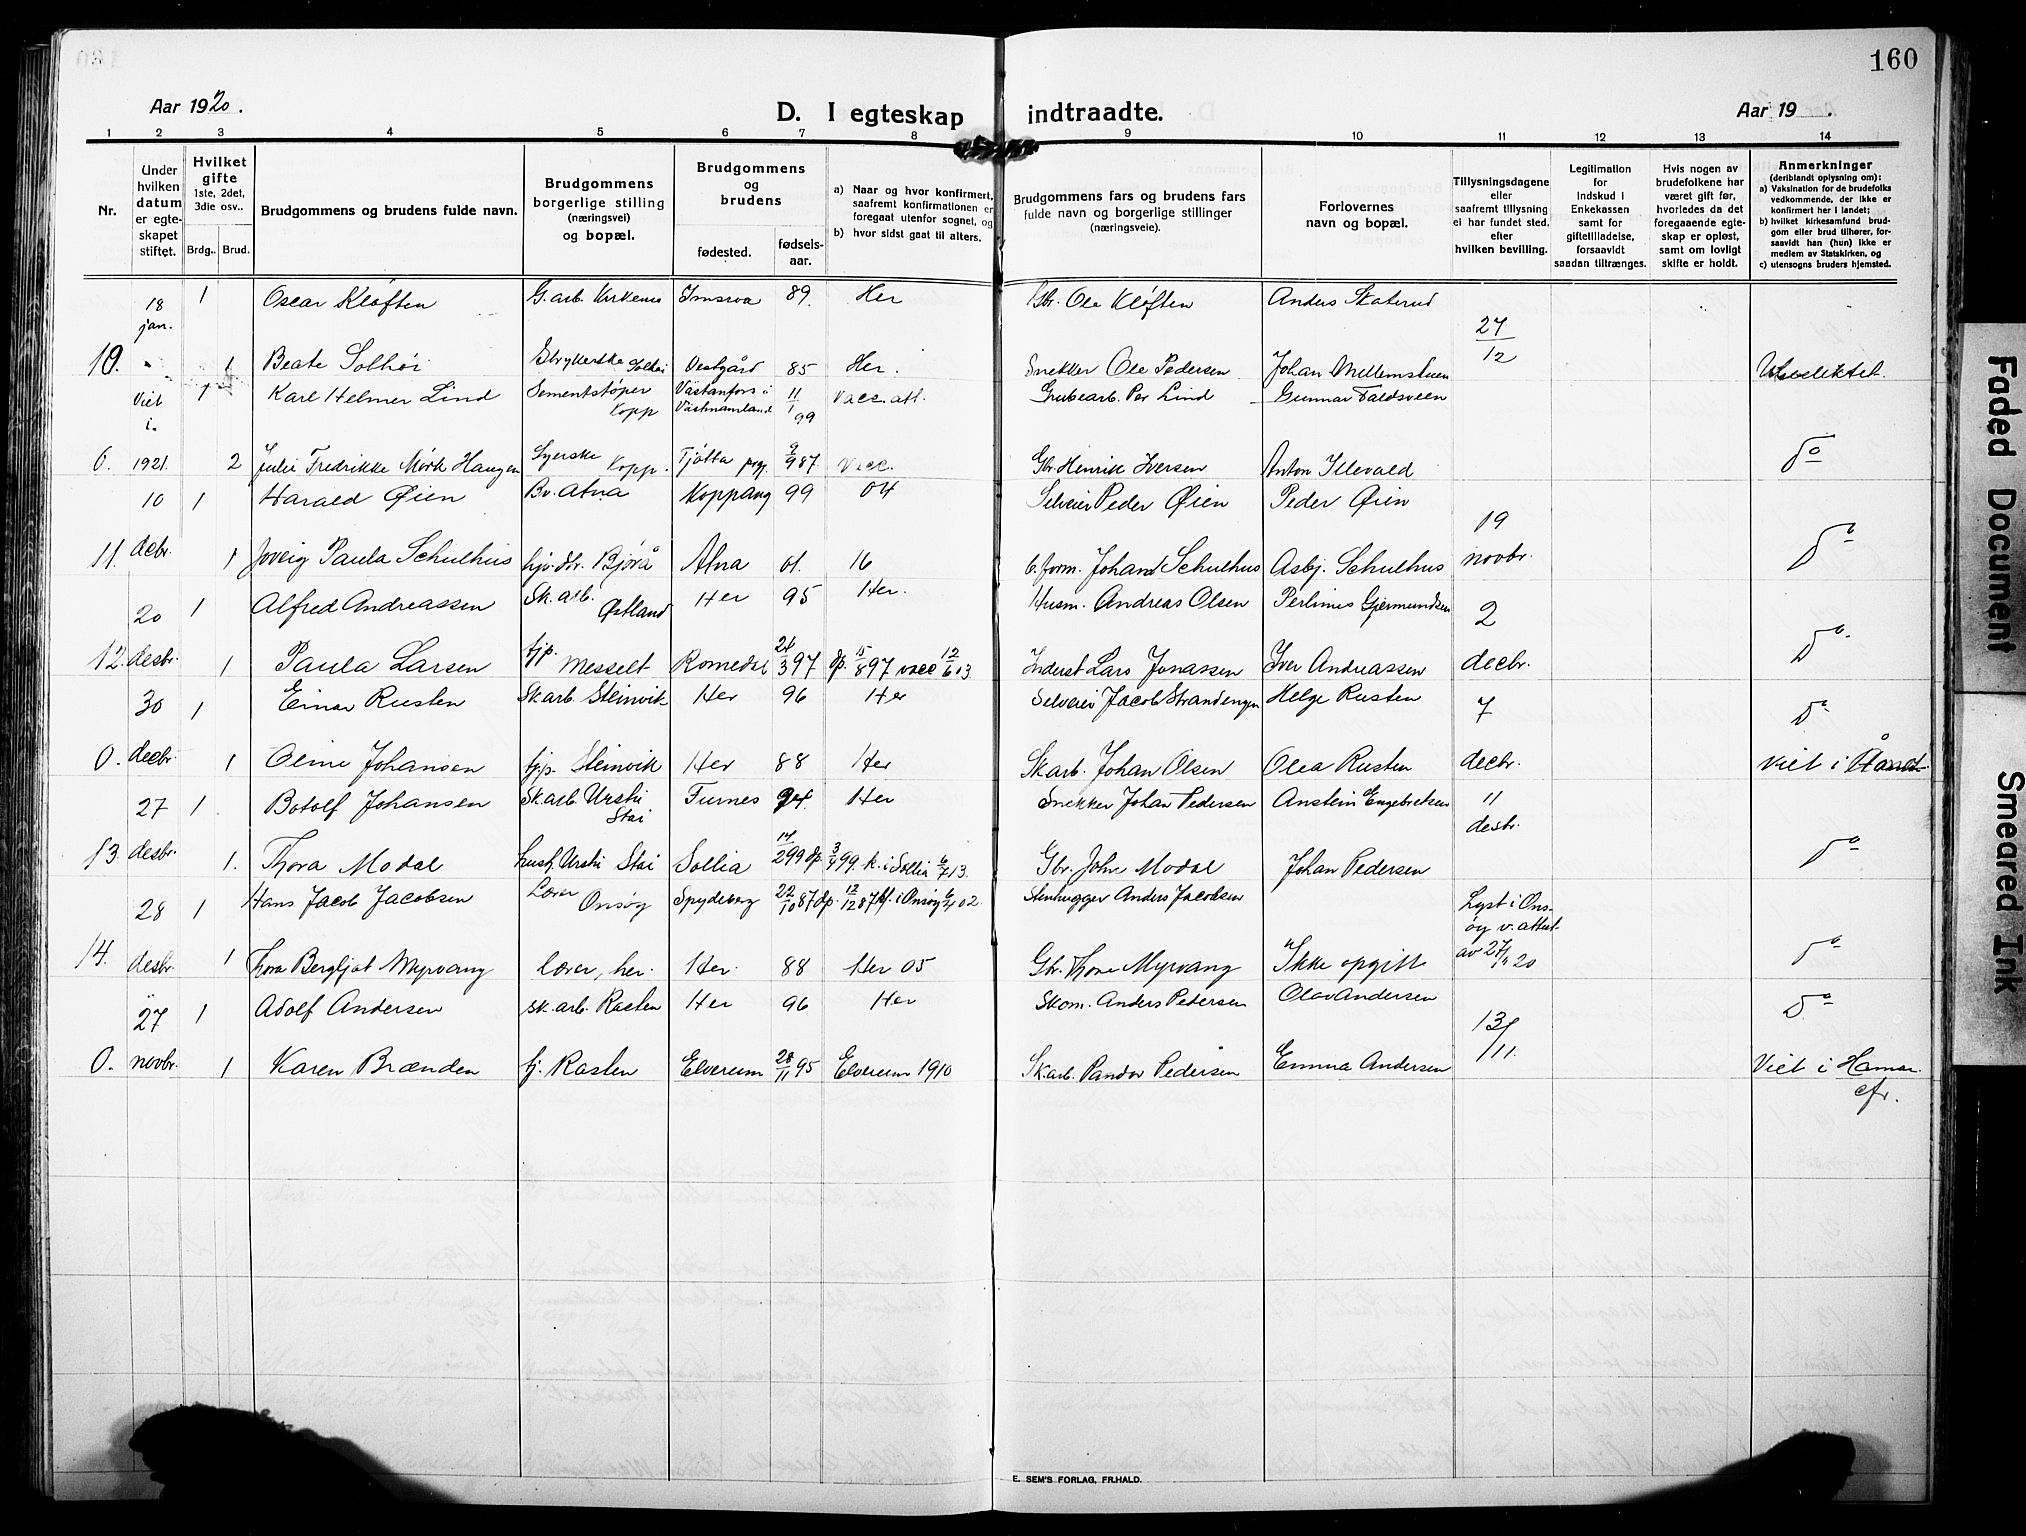 160
Aar 1920.
D. I egteskap indtraadte.
Aar 19 .
1 2 3 4 5 6 7 8 9 10 11 12 13 14
Nr.
Under hvilken datum er egteskapet stiftet.
Hvilket gifte 1ste, 2det, 3die osv..
Brdg.. Brud.
Brudgommens og brudens fulde navn.
Brudgommens borgerlige stilling (næringsvei) og bopæl.
Brudgommens og brudens
fødested. fødsels-aar.
a) Naar og hvor konfirmert, saafremt konfirmationen er foregaat utenfor sognet, og
b) hvor sidst gaat til alters.
Brudgommens fars og brudens fars fulde navn og borgerlige stillinger (næringsveie).
Forlovernes navn og bopæl.
Tillysningsdagene eller saafremt tillysning ei har fundet sted, efter hvilken bevilling.
Legitimation for Indskud i Enkekassen samt for giftetilladelse, forsaavidt saadan tiltrænges.
Hvis nogen av brudefolkene har været gift før, hvorledes da det foregaaende egteskap er opløst, samt om lovligt skifte er holdt.
Anmerkninger (deriblandt oplysning om): a) Vaksination for de brudefolks vedkommende, der ikke er konfirmert her i landet; b) hvilket kirkesamfund brudgom eller brud tilhører, forsaavidt han (hun) ikke er medlem av Statskirken, og c) utensogns bruders hjemsted.
18 jan. 1 Oscar Kløften G.arb. Kirkenes Imsroa 89. Her Gbr. Ole Kløften Anders Skaterud 27/12
10. 1 Beate Solhøi Strykerske Solhøi Vestgård 85 Her. Snekker Ole Pedersen Johan Mellemstuen
Viet i. 1 Karl Helmer Lind Sementstøper Kopp Västanfors i Västmanland 11/1 99 Vacc. att. Grubearb. Per Lind Gunnar Faldsveen
6. 1921. 2 Julie Fredrikke Mørk Haugen Syerske Kopp. Tjøtta pgj. 9/9 87 Vacc. Gbr. Henrik Iversen Anton Illevold Do
10 1 Harald Øien Bv. Atna Koppang 99 04 Selveier Peder Øien Peder Øien 19
11. decbr. 1 Joveig Paula Schulhus hjv. dtr. Bjørå Atna 01. 16 b.form. Johand Schulhus Asbj. Schulhus novbr. Do
20 1 Alfred Andreassen Sk.arb. Østland Her 95 Her. Husm. Andreas Olsen Perlines Gjermundsen 2
12. desbr. 1 Paula Larsen tjp. Messelt Romedal 24/3 97 dp. 15/8 97 vacc 12/6 13 Inderst Lars Jonassen Iver Andreassen decbr. Do
30 1 Einar Rusten Skarb. Steinvik Her 96 Her Selveier Jacob Strandengen Helge Rusten 7 Do
0. decbr. 1 Oline Johansen tjp. Steinvik Her 88 Her Skarb. Johan Olsen Olea Rusten decbr. Viet i
27 1. Botolf Johansen Sk.arb Ursti Stai Furnes 94. Her Snekker Johan Pedersen Anstein Engebretsen 11 desbr.
13. desbr. 1. Thora Modal hush. Ursti Stai Sollia 17/2 99 dp. 3/4 99. k. i Sollia 6/7 13. Gbr. John Modal Johan Pedersen Do
28 1 Hans Jacob Jacobsen Lærer Onsøy Spydeberg 22/10 87 dp. 12/12 87 kf. i Onsøy 02. Stenhugger Anders Jacobsen Lyst i Onsøy v. attest av 27/11 20
14. desbr. 1 Thora Bergljot Myrvang Lærer, her. Her. 88 Her 05 Gbr. Thore Myrvang Ikke opgitt Do
27 1 Adolf Andersen sk.arb. Rasten Her 96 Her Skom. Anders Pedersen Olav Andersen 13/11. Do
0. novbr. 1 Karen Brænden tj. Rasten Elverum 28/11 95 Elverum 1910 Skarb. Pandor Pedersen Emma Andersen Viet i Hamar cfr.
E. SEM'S FORLAG, FR.HALD.
Faded Document
Smeared Ink